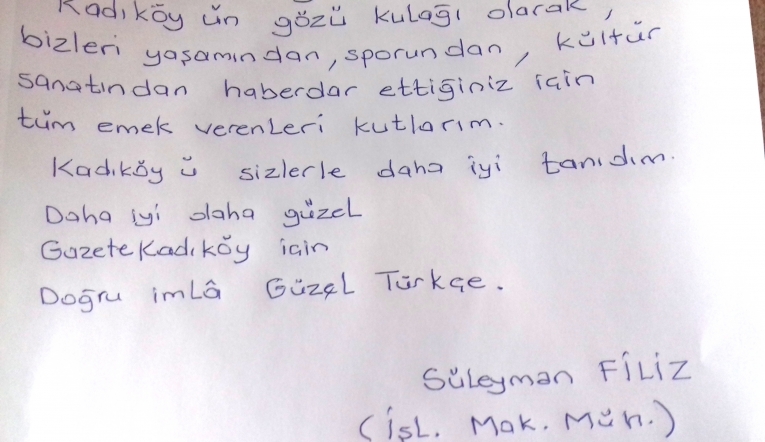 Kadıköy ün gözü kulağı olarak,
bizleri yaşamından, sporundan, kültür
sanatından haberdar ettiğiniz için
tüm emek verenleri kutlarım.
Kadıköy ü sizlerle daha iyi tanıdım.
Daha iyi daha güzel
Gazete Kadıköy için
Doğru imlâ Güzel Türkçe.
Süleyman FİLİZ
(İşl. Mak. Müh.)